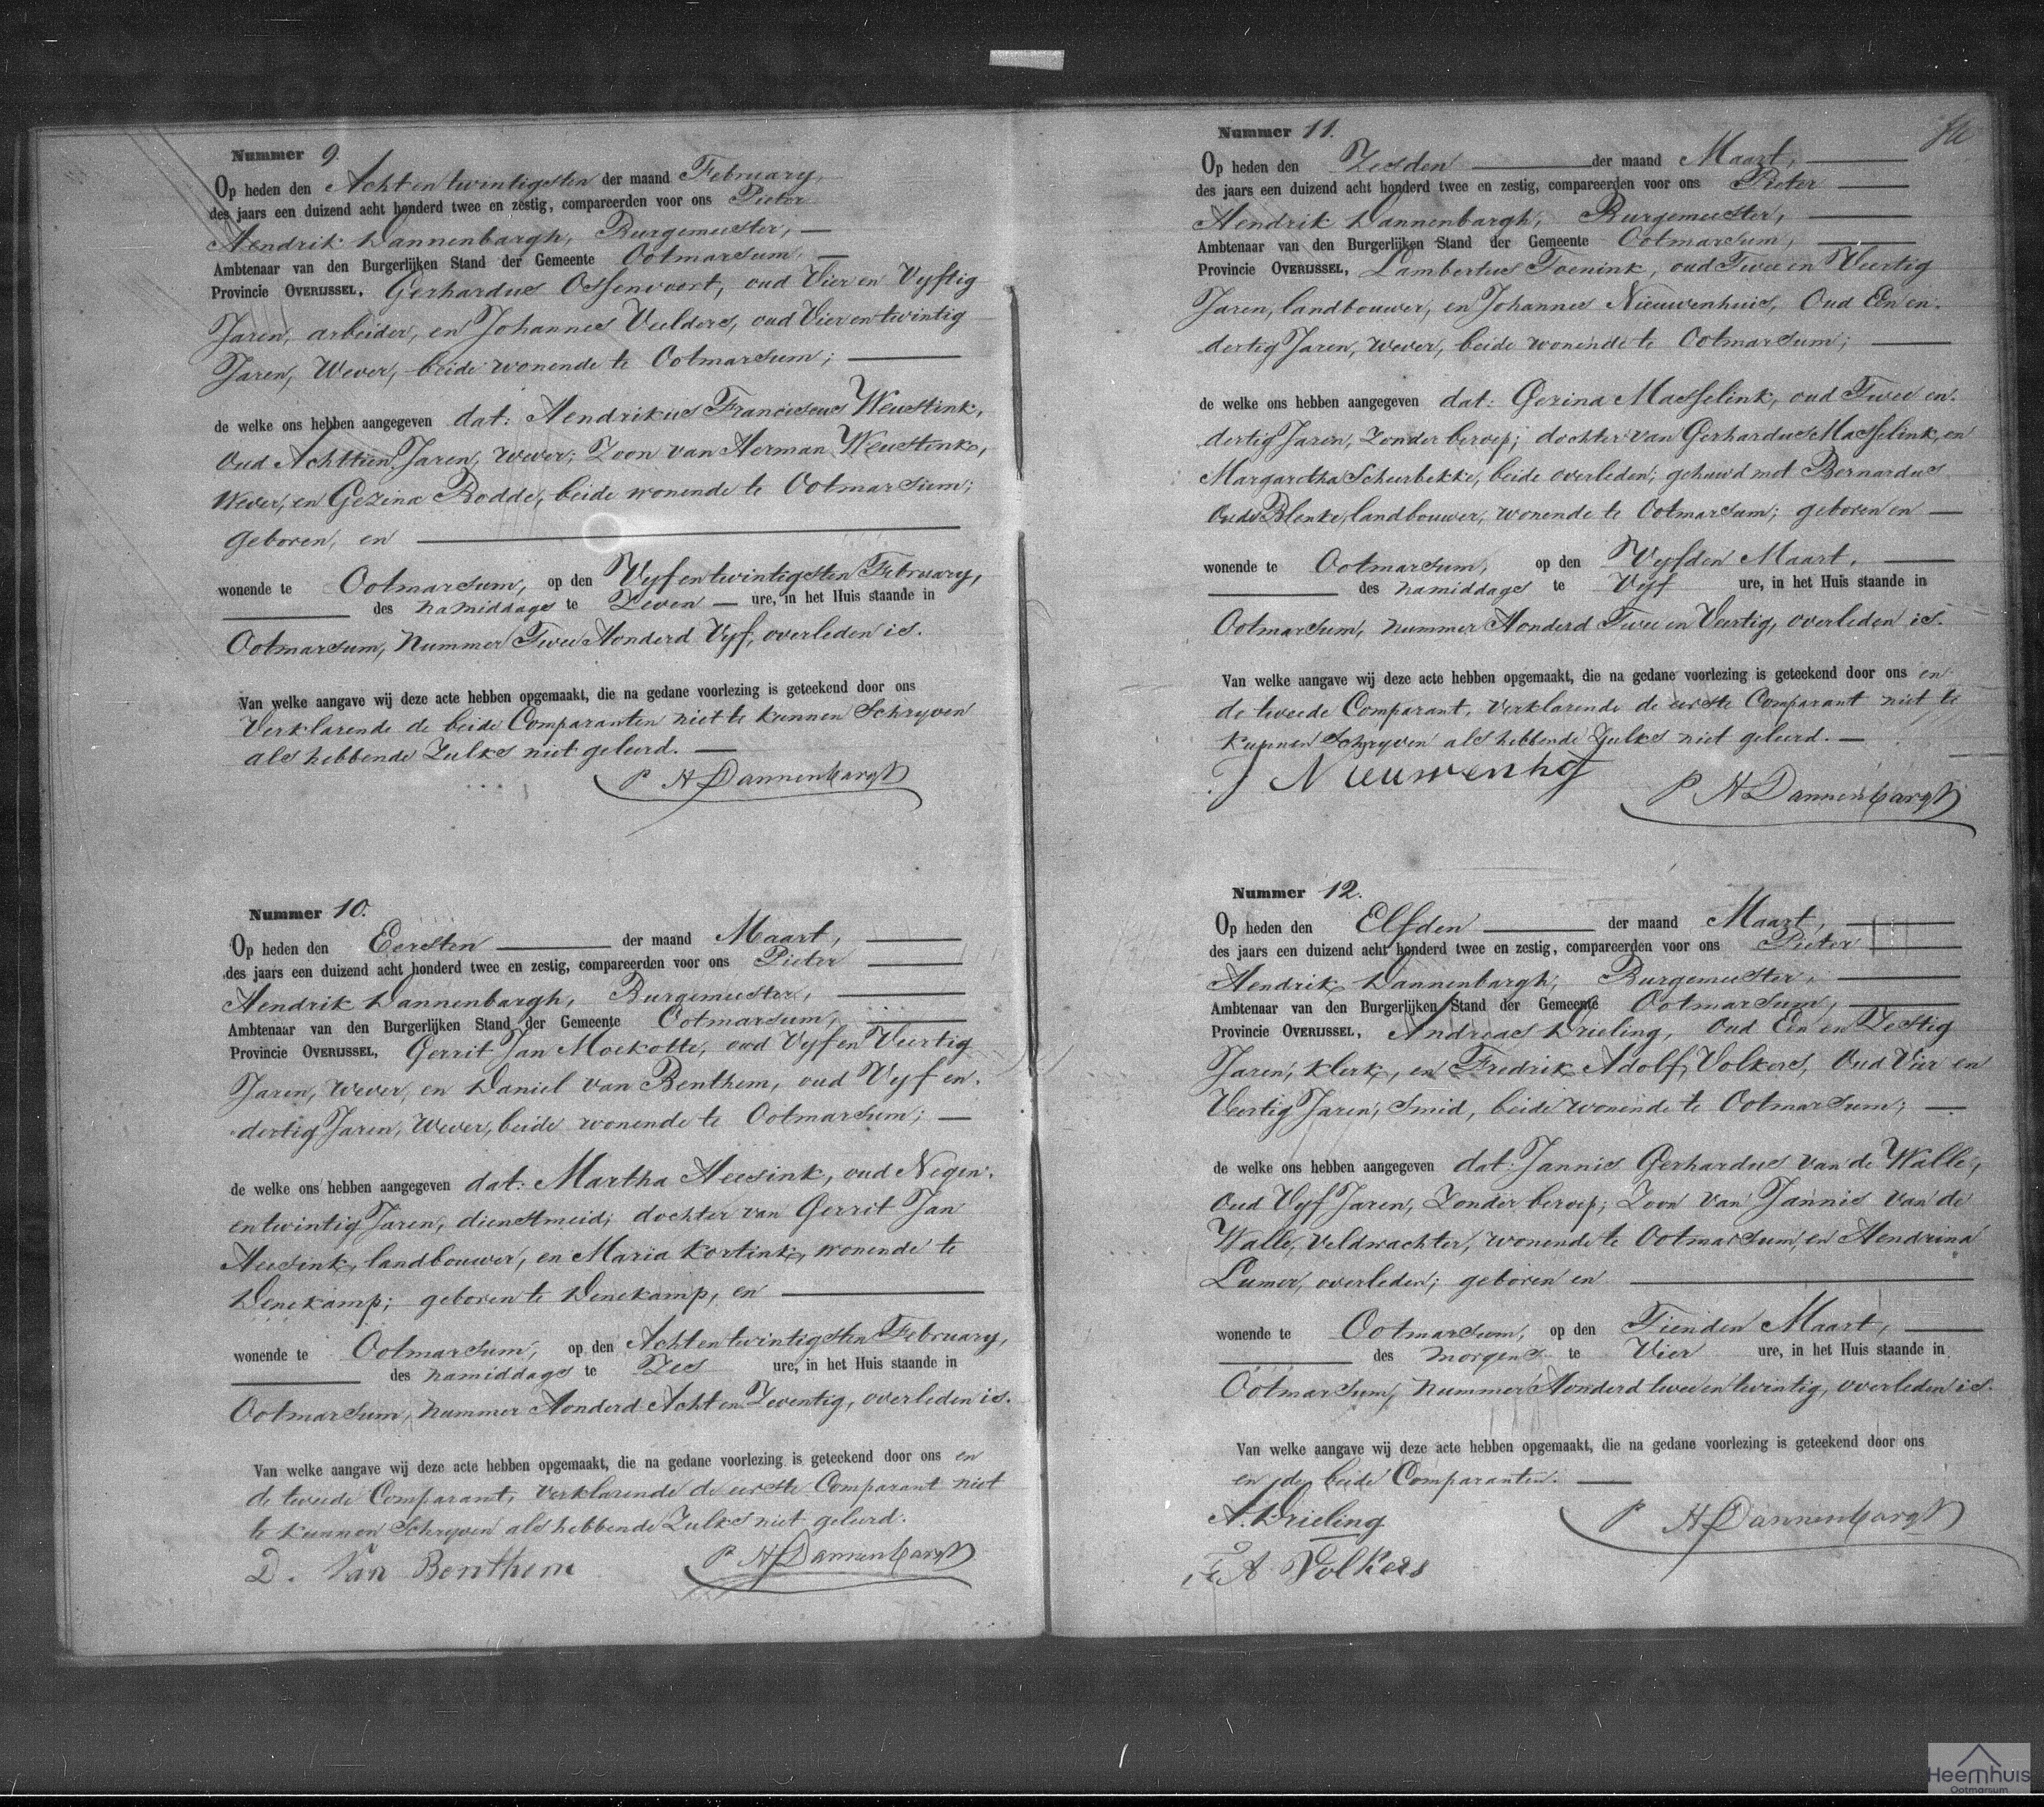 Nummer 9.
Op heden den Acht en twintigsten der maand February,
des jaars een duizend acht honderd twee en zestig, compareerden voor ons Pieter
Hendrik Dannenbargh, Burgemeester,
Ambtenaar van den Burgerlijken Stand der Gemeente Ootmarsum,
Provincie OVERIJSSEL, Gerhardus Ossenvoort, oud Vier en Vyftig
Jaren, arbeider, en Johannes Velders, oud Vier en twintig
Jaren, Wever, beide wonende te Ootmarsum;
de welke ons hebben aangegeven dat: Hendrikus Franciscus Weustink,
oud Achttien Jaren, wever; Zoon van Herman Weustink,
Wever, en Gezina Bodde, beide wonende te Ootmarsum;
geboren, en
wonende te Ootmarsum, op den Vyf en twintigsten February,
des namiddags te Zeven ure, in het Huis staande in
Ootmarsum, Nummer Twee Honderd Vyf, overleden is.
Van welke aangave wij deze acte hebben opgemaakt, die na gedane voorlezing is geteekend door ons
Verklarende de beide Comparanten niet te kunnen Schryven
als hebbende Zulks niet geleerd.
P H Dannenbargh
Nummer 10.
Op heden den Eersten der maand Maart,
des jaars een duizend acht honderd twee en zestig, compareerden voor ons Pieter
Hendrik Dannenbargh, Burgemeester,
Ambtenaar van den Burgerlijken Stand der Gemeente Ootmarsum,
Provincie OVERIJSSEL, Gerrit Jan Moekotte, oud Vyf en Veertig
Jaren, Wever, en Daniel van Benthem, oud Vyf en
dertig Jaren, Wever, beide wonende te Ootmarsum;
de welke ons hebben aangegeven dat: Martha Heesink, oud Negen
en twintig Jaren, dienstmeid; dochter van Gerrit Jan
Heesink, landbouwer, en Maria Kortink, wonende te
Denekamp; geboren te Denekamp, en
wonende te Ootmarsum, op den Acht en twintigsten February,
des namiddags te Zes ure, in het Huis staande in
Ootmarsum, nummer Honderd Acht en Zeventig, overleden is.
Van welke aangave wij deze acte hebben opgemaakt, die na gedane voorlezing is geteekend door ons en
de tweede Comparant, verklarende de eerste Comparant niet
te kunnen Schryven als hebbende Zulks niet geleerd.
D. Van Benthem P H Dannenbargh
Nummer 11.
Op heden den Zesden der maand Maart,
des jaars een duizend acht honderd twee en zestig, compareerden voor ons Pieter
Hendrik Dannenbargh, Burgemeester,
Ambtenaar van den Burgerlijken Stand der Gemeente Ootmarsum,
Provincie OVERIJSSEL, Lambertus Toenink, oud Twee en Veertig
Jaren, landbouwer, en Johannes Nieuwenhuis, Oud Een en
dertig Jaren, wever, beide wonende te Ootmarsum;
de welke ons hebben aangegeven dat: Gezina Masselink, oud Twee en
dertig Jaren, Zonder beroep; dochter van Gerhardus Masselink, en
Margaretha Scheerbekke, beide overleden; gehuwd met Bernardus
Oude Blenke, landbouwer, wonende te Ootmarsum; geboren en
wonende te Ootmarsum, op den Vyfden Maart,
des namiddags te Vyf ure, in het Huis staande in
Ootmarsum, nummer Honderd Twee en Veertig, overleden is.
Van welke aangave wij deze acte hebben opgemaakt, die na gedane voorlezing is geteekend door ons en
de tweede Comparant, verklarende de eerste Comparant niet te
kunnen Schryven als hebbende Zulks niet geleerd.
J P H Dannenbargh
Nummer 12.
Op heden den Elfden der maand Maart,
des jaars een duizend acht honderd twee en zestig, compareerden voor ons Pieter
Hendrik Dannenbargh, Burgemeester,
Ambtenaar van den Burgerlijken Stand der Gemeente Ootmarsum,
Provincie OVERIJSSEL, Andreas Drieling, oud Een en Zestig
Jaren, klerk, en Fredrik Adolf Volkers, Oud Vier en
Veertig Jaren, Smid, beide wonende te Ootmarsum;
de welke ons hebben aangegeven dat: Jannis Gerhardus van de Walle,
oud Vyf Jaren, Zonder beroep; Zoon van Jannis van de
Walle, Veldwachter, wonende te Ootmarsum, en Hendrina
Lumer, overleden; geboren en
wonende te Ootmarsum, op den Tienden Maart,
des morgens te Vier ure, in het Huis staande in
Ootmarsum, nummer Honderd twee en twintig, overleden is.
Van welke aangave wij deze acte hebben opgemaakt, die na gedane voorlezing is geteekend door ons
en de beide Comparanten.
A. Drieling P H Dannenbargh
F A Volkers
Heemhuis
Ootmarsum